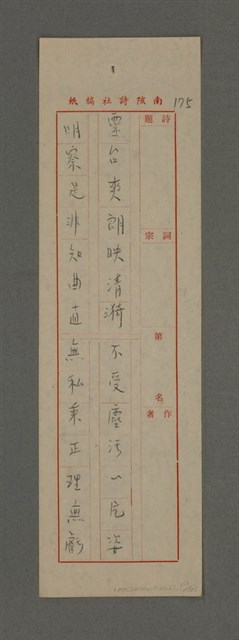 南陔詩社稿紙
175
詩題
詞宗
第 名
作者
靈台爽朗映清漪 不受塵污一片姿
明察是非知曲直 無私秉正理無虧